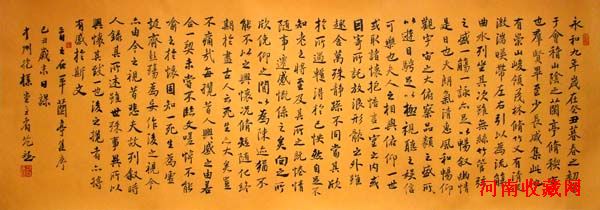 永和九年歲在癸丑暮春之初會
于會稽山陰之蘭亭脩稧事
也群賢畢至少長咸集此地
有崇山峻領茂林脩竹又有清流
激湍暎帶左右引以為流觴
曲水列坐其次雖無絲竹管弦
之盛一觴一詠亦足以暢敘幽情
是日也天朗氣清惠風和暢仰
觀宇宙之大俯察品類之盛所
以遊目騁足以極視聽之娛信
可樂也夫人之相與俯仰一世
或取諸懷抱悟言一室之內或
因寄所託放浪形骸之外雖
趣舍萬殊靜躁不同當其欣
於所遇暫得於己快然自足不
知老之將至及其所之既惓情
隨事遷感慨係之矣向之所
欣俛仰之間以為陳迹猶不
能不以之興懷況脩短隨化終
期於盡古人云死生亦大矣豈
不痛哉每攬昔人興感之由若
合一契未嘗不臨文嗟悼不能
喻之於懷固知一死生為虛
誕齊彭殤為妄作後之視今
亦由今之視昔悲夫故列敘時
人錄其所述雖世殊事異所以
興懷其致一也後之攬者亦將
有感於斯文
晉王右軍蘭亭集序
己丑歲末日課
中州抱樸堂主
河南收藏网